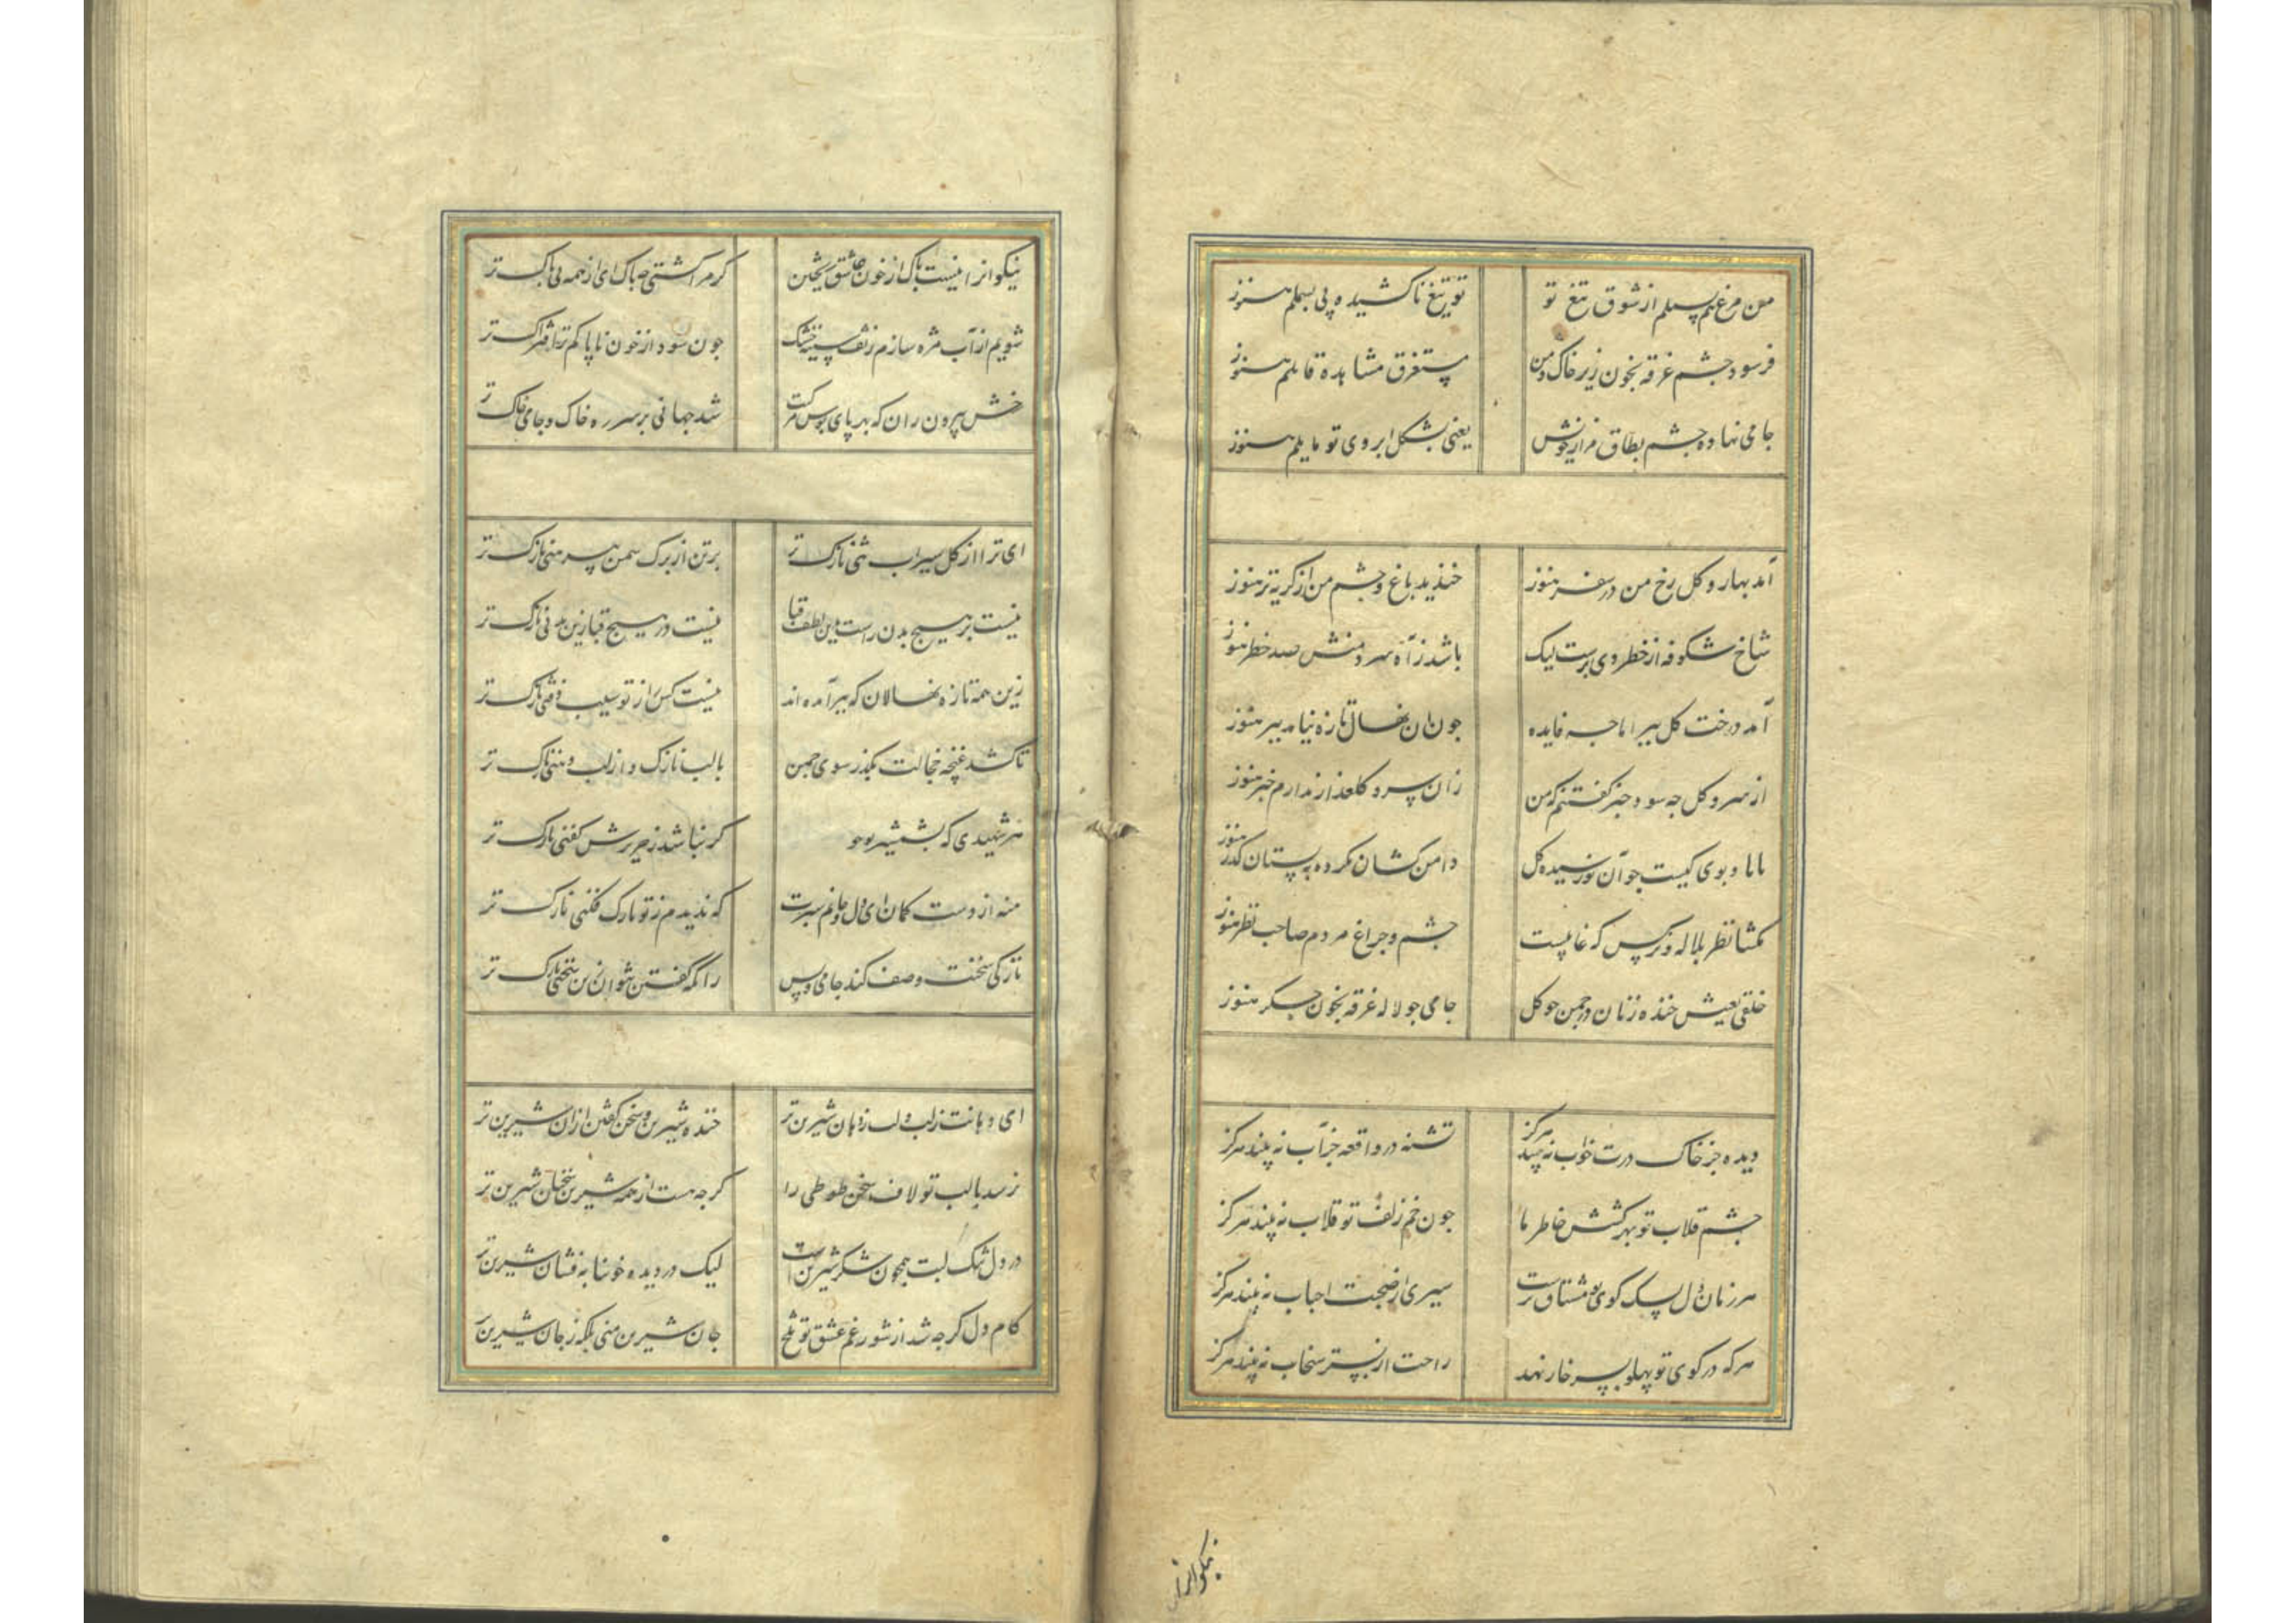 من مرغ نیم بسملم از شوق تیغ تو
تو تیغ ناکشیده پی بسملم هنوز
فرسود چشم غرقه بخون زیر خاک و من
مستغرق مشاهده قاتلم هنوز
جامی نهاده چشم بطاق مزار خویش
یعنی بشکل ابروی تو مایلم هنوز
آمد بهار و کل رخ من در سفر هنوز
خندید باغ و چشم من از کریه تر هنوز
شاخ شکوفه از خطر دی برست لیک
باشد ز آه سرد منش صد خطر هنوز
آمد درخت کل ببر اما جه فایده
جون ان نهال تازه نیامد ببر هنوز
از سرو کل جه سود خبر کفتنم که من
زان سرو کلعذار ندارم خبر هنوز
مانا و بوی کیست جو آن نورسیده کل
دامن کشان نکرده به بستان کذر هنوز
مکشا نظر بلاله و نرکس که غایبست
چشم و جراغ مردم صاحب نظر هنوز
خلقی بعیش خنده زنان در جمن جو کل
جامی جو لاله غرقه بخون جکر هنوز
دیده جز خاک درت خواب نه بیند هرکز
تشنه در واقعه جز آب نه بیند هرکز
جشم قلاب تو بهر کشش خاطر ما
جون خم زلف تو قلاب نه بیند هرکز
هر زمان دل بسک کوی تو مشتاق ترست
سیری از صحبت احباب نه بیند هرکز
هر که در کوی تو پهلو بسر خار نهد
راحت از بستر سنجاب نه بیند هرکز
نیکوانرا
نیکوانرا نیست باک از خون عاشق ریختن
کر مرا کشتی جه باک ای از همه بی باک تر
شویم از آب مژه سازم ز تف سینه خشک
جون شود از خون ناپاکم ترا فتراک تر
خش بیرون ران که بهر پای بوس مرکبت
شد جهانی بر سر ره خاک و جامی خاک تر
ای ترا از کل سیراب تنی نازک تر
بر تن از برک سمن پیرهنی نازک تر
نیست بر هیچ بدن راست بدین لطف قبا
نیست در هیچ قبا زین بدنی نازک تر
زین همه تازه نهالان که ببر آمده اند
نیست کس را ز تو سیب ذقنی نازک تر
تا کشد غنچه خجالت بکذر سوی جمن
با لب نازک و از لب دهنی نازک تر
هر شهیدی که بشمشیر
کر نباشد ز حریرش کفنی نازک تر
منه از دست کمان ای دل و جانم سپرت
که ندیدم ز تو ناوک فکنی نازک تر
نازکی سخنت وصف کند جامی و بس
زانکه کفتن نتوان زین سخنی نازک تر
ای دهانت ز لب و لب ز دهان شیرین تر
خنده شیرین و سخن کفتن ازان شیرین تر
نرسد با لب تو لاف سخن طوطی را
کر جه هست از همه شیرین سخنان شیرین تر
در دل تنک لبت همجون شکر شیرین است
لیک در دیده خونابه فشان شیرین تر
کام دل کر جه شد از شور غم عشق تو تلخ
جان شیرین منی بلکه ز جان شیرین تر